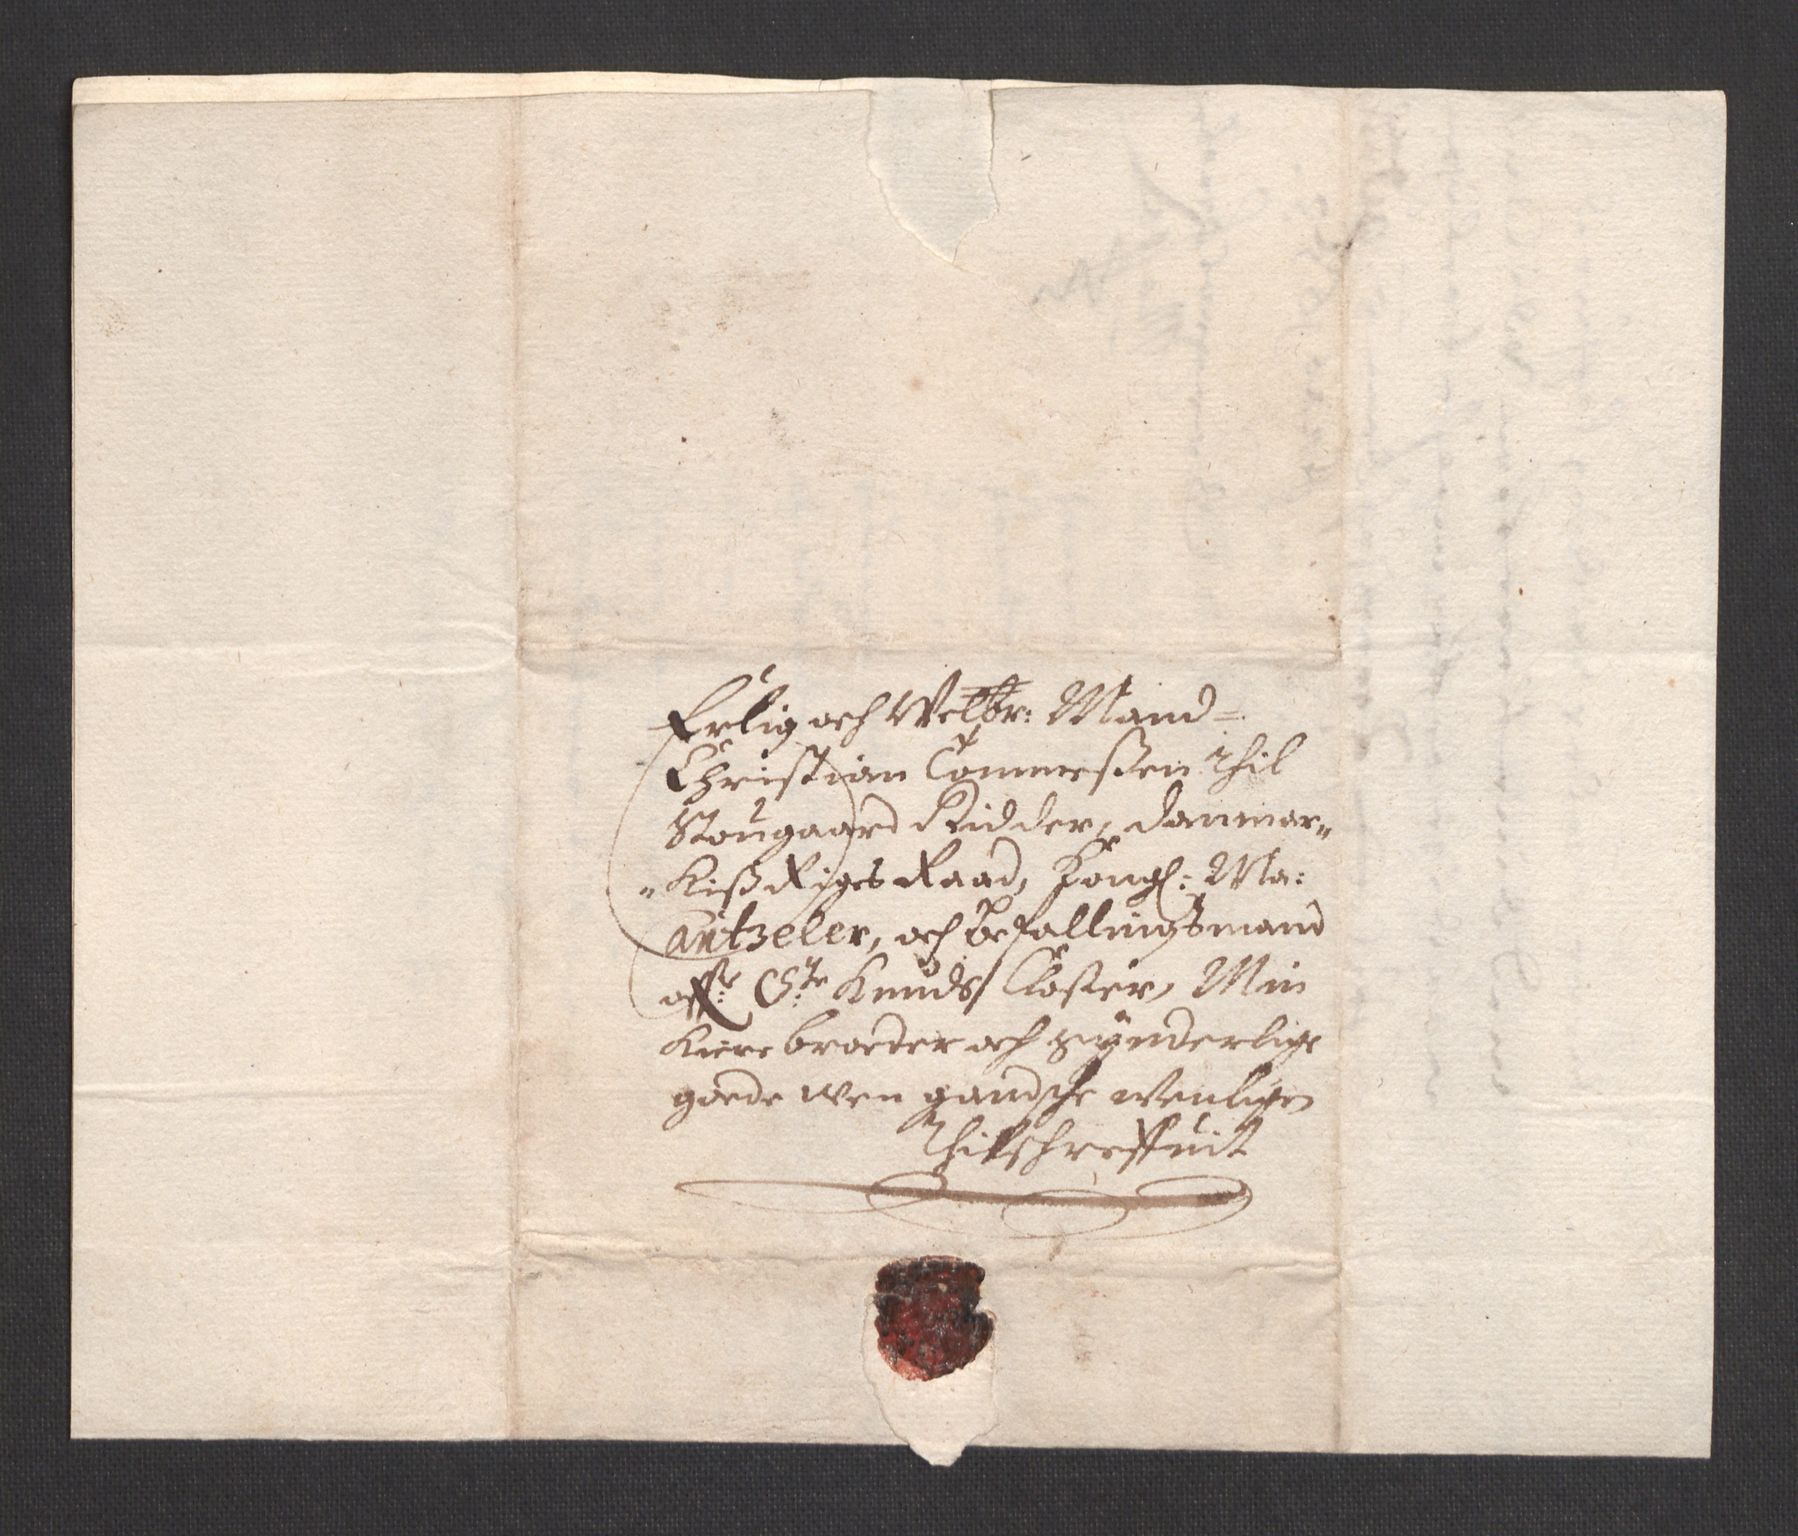 Erlig och Welbr: Mand=
Christian Tommeßen thil
Stougaard Ridder, danmar„
„kiß Riges Raad, Kongl: Ma:
Cantzeler, och befallingsmand
offr Ste Knuds Closter, Min
kiere broeder och synderlige
goede wen gandsche wenligen
thilschreffuit